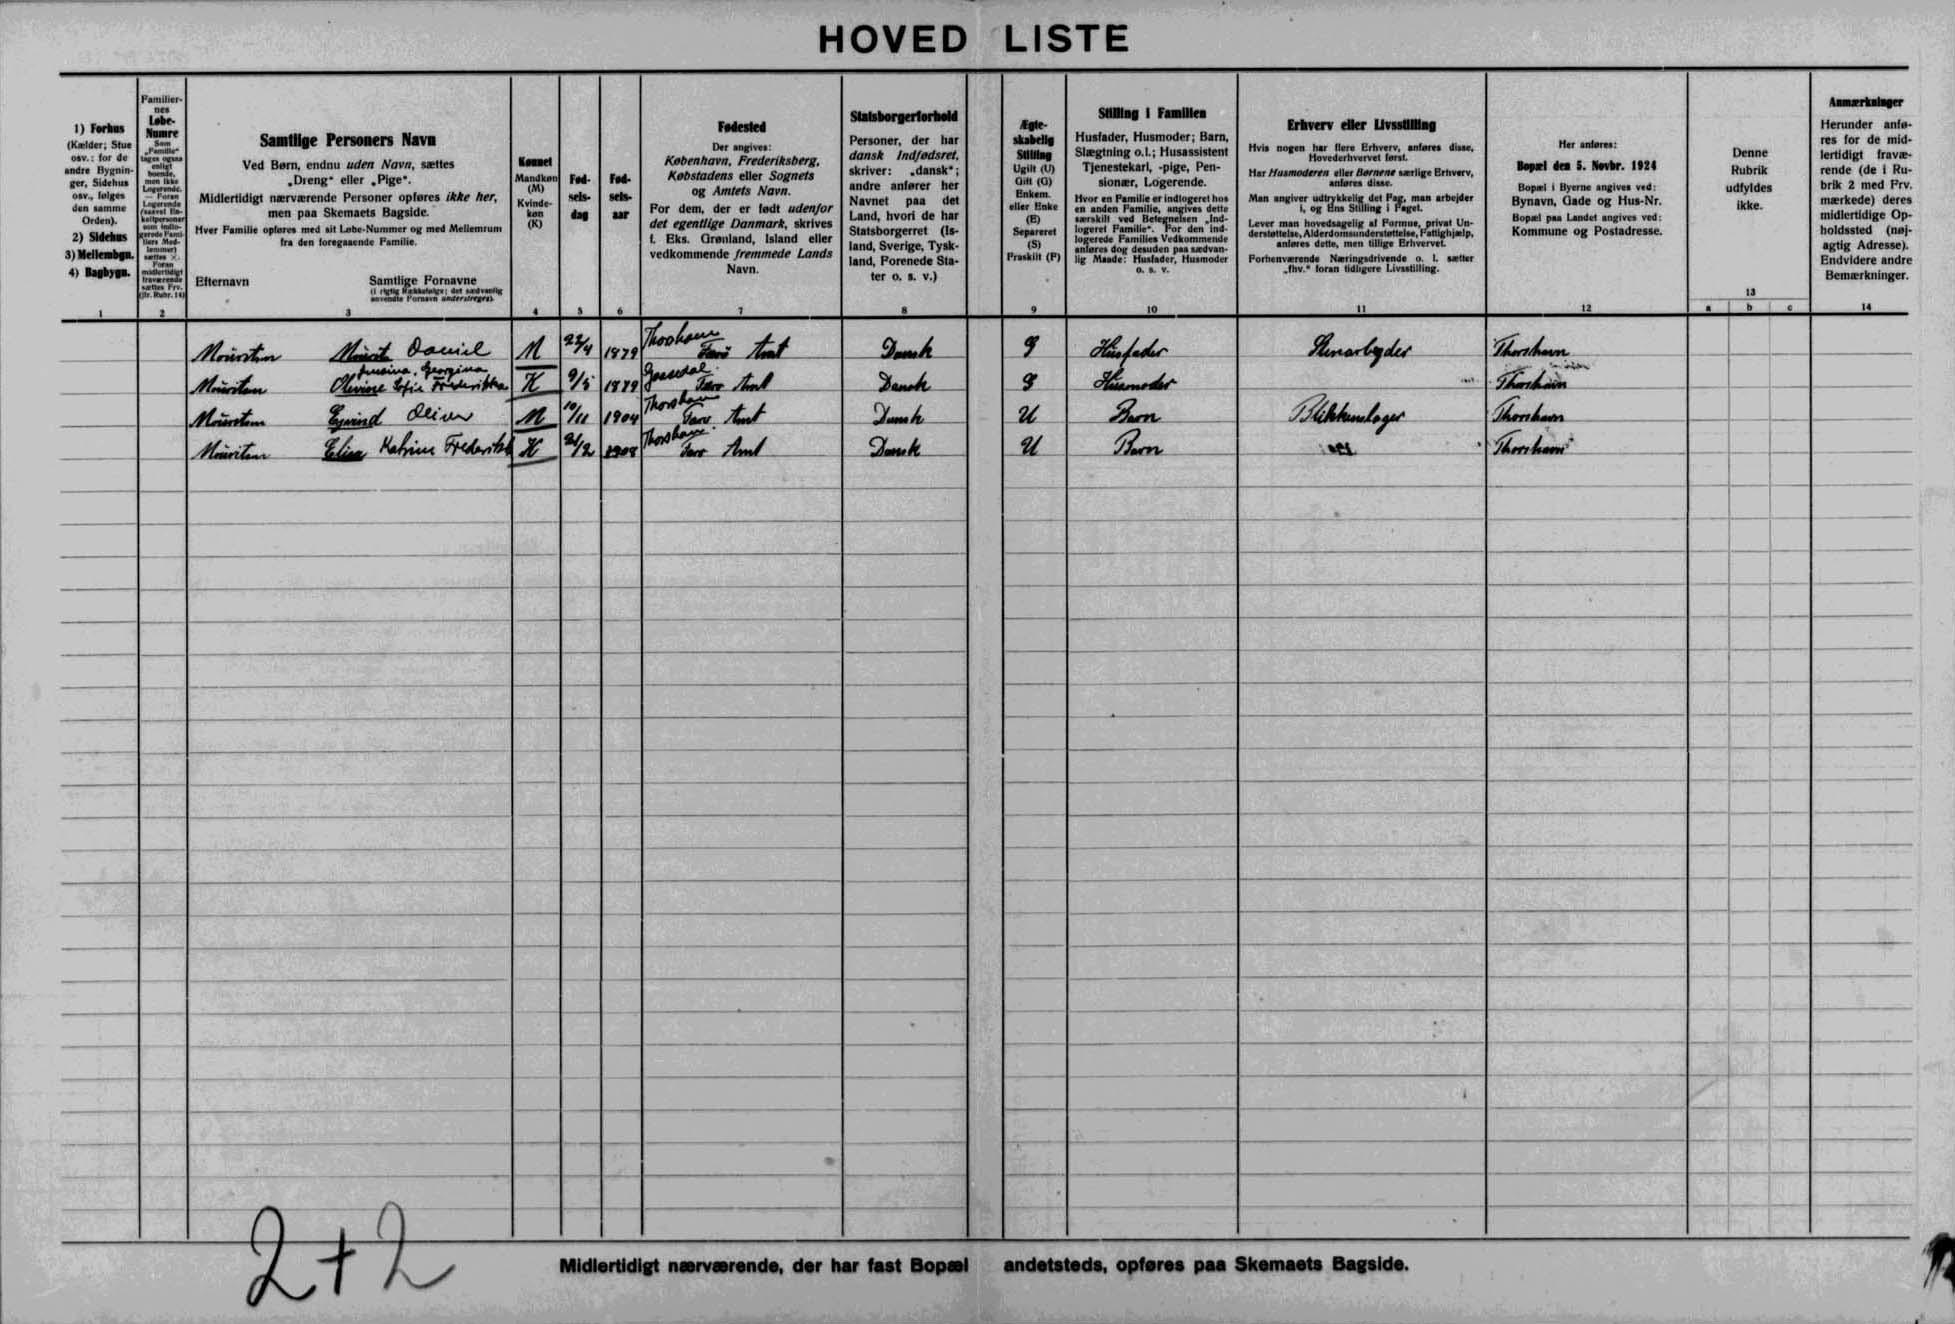 HOVED LISTE
1) Forhus
(Kælder; Stue
osv.: for de
andre Bygnin-
ger, Sidehus
osv., følges
den samme
Orden).
2) Sidehus
3) Mellembgn.
4) Bagbygn.
1
Familier-
nes
Løbe-
Numre
Som
„Familie"
tages ogsaa
enligt
boende,
men ikke
Logerende.
— Foran
Logerende
(saavel En-
keltpersoner
som indlo-
gerede Fami-
liers Med-
lemmer)
sættes ×.
Foran
midlertidigt
fraværende
sættes Frv.
(jfr. Rubr. 14)
2
Samtlige Personers Navn
Ved Børn, endnu uden Navn, sættes
„Dreng" eller „Pige".
Midlertidigt nærværende Personer opføres ikke her,
men paa Skemaets Bagside.
Hver Familie opføres med sit Løbe-Nummer og med Mellemrum
fra den foregaaende Familie.
Efternavn Samtlige Fornavne
(i rigtig Rækkefølge; det sædvanlig
anvendte Fornavn understreges).
3
Kønnet
Mandkøn
(M)
Kvinde-
køn
(K)
4
Fød-
sels-
dag
5
Fød-
sels-
aar
6
Fødested
Der angives:
København, Frederiksberg,
Købstadens eller Sognets
og Amtets Navn.
For dem, der er født udenfor
det egentlige Danmark, skrives
f. Eks. Grønland, Island eller
vedkommende fremmede Lands
Navn.
7
Statsborgerforhold
Personer, der har
dansk Indfødsret,
skriver: „dansk";
andre anfører her
Navnet paa det
Land, hvori de har
Statsborgerret (Is-
land, Sverige, Tysk-
land, Forenede Sta-
ter o. s. v.)
8
Ægte-
skabelig
Stilling
Ugift (U)
Gift (G)
Enkem.
eller Enke
(E)
Separeret
(S)
Fraskilt (F)
9
Stilling i Familien
Husfader, Husmoder; Barn,
Slægtning o.l.; Husassistent
Tjenestekarl, -pige, Pen-
sionær, Logerende.
Hvor en Familie er indlogeret hos
en anden Familie, angives dette
særskilt ved Betegnelsen „Ind-
logeret Familie". For den ind-
logerede Families Vedkommende
anføres dog desuden paa sædvan-
lig Maade: Husfader, Husmoder
o. s. v.
10
Erhverv eller Livsstilling
Hvis nogen har flere Erhverv, anføres disse,
Hovederhvervet først.
Har Husmoderen eller Børnene særlige Erhverv,
anføres disse.
Man angiver udtrykkelig det Fag, man arbejder
i, og Ens Stilling i Faget.
Lever man hovedsagelig af Formue, privat Un-
derstøttelse, Alderdomsunderstøttelse, Fattighjælp,
anføres dette, men tillige Erhvervet.
Forhenværende Næringsdrivende o. l. sætter
„fhv." foran tidligere Livsstilling.
11
Her anføres:
Bopæl den 5. Novbr. 1924
Bopæl i Byerne angives ved:
Bynavn, Gade og Hus-Nr.
Bopæl paa Landet angives ved:
Kommune og Postadresse.
12
Denne
Rubrik
udfyldes
ikke.
13
a b c
Anmærkninger
Herunder anfø-
res for de mid-
lertidigt fravæ-
rende (de i Ru-
brik 2 med Frv.
mærkede) deres
midlertidige Op-
holdssted (nøj-
agtig Adresse).
Endvidere andre
Bemærkninger.
14
Mouritsen Mourits Daniel M 22/4 1879 Thorshavn Færø Amt Dansk G Husfader Stenarbejder Thorshavn
Georgina
Mouritsen Olevine Sofie Frederikka K 9/5 1879 Færo Amt Dansk G Husmoder Thorshavn
Mouritsen Ejvind Oliver M 10/11 1904 Thorshavn Færo Amt Dansk U Barn Blikkenslager Thorshavn
Mouritsen Elisa Katrine Frederikk K 21/2 1908 Thorshavn Færo Amt Dansk U Barn Thorshavn
2+2
Midlertidigt nærværende, der har fast Bopæl andetsteds, opføres paa Skemaets Bagside.